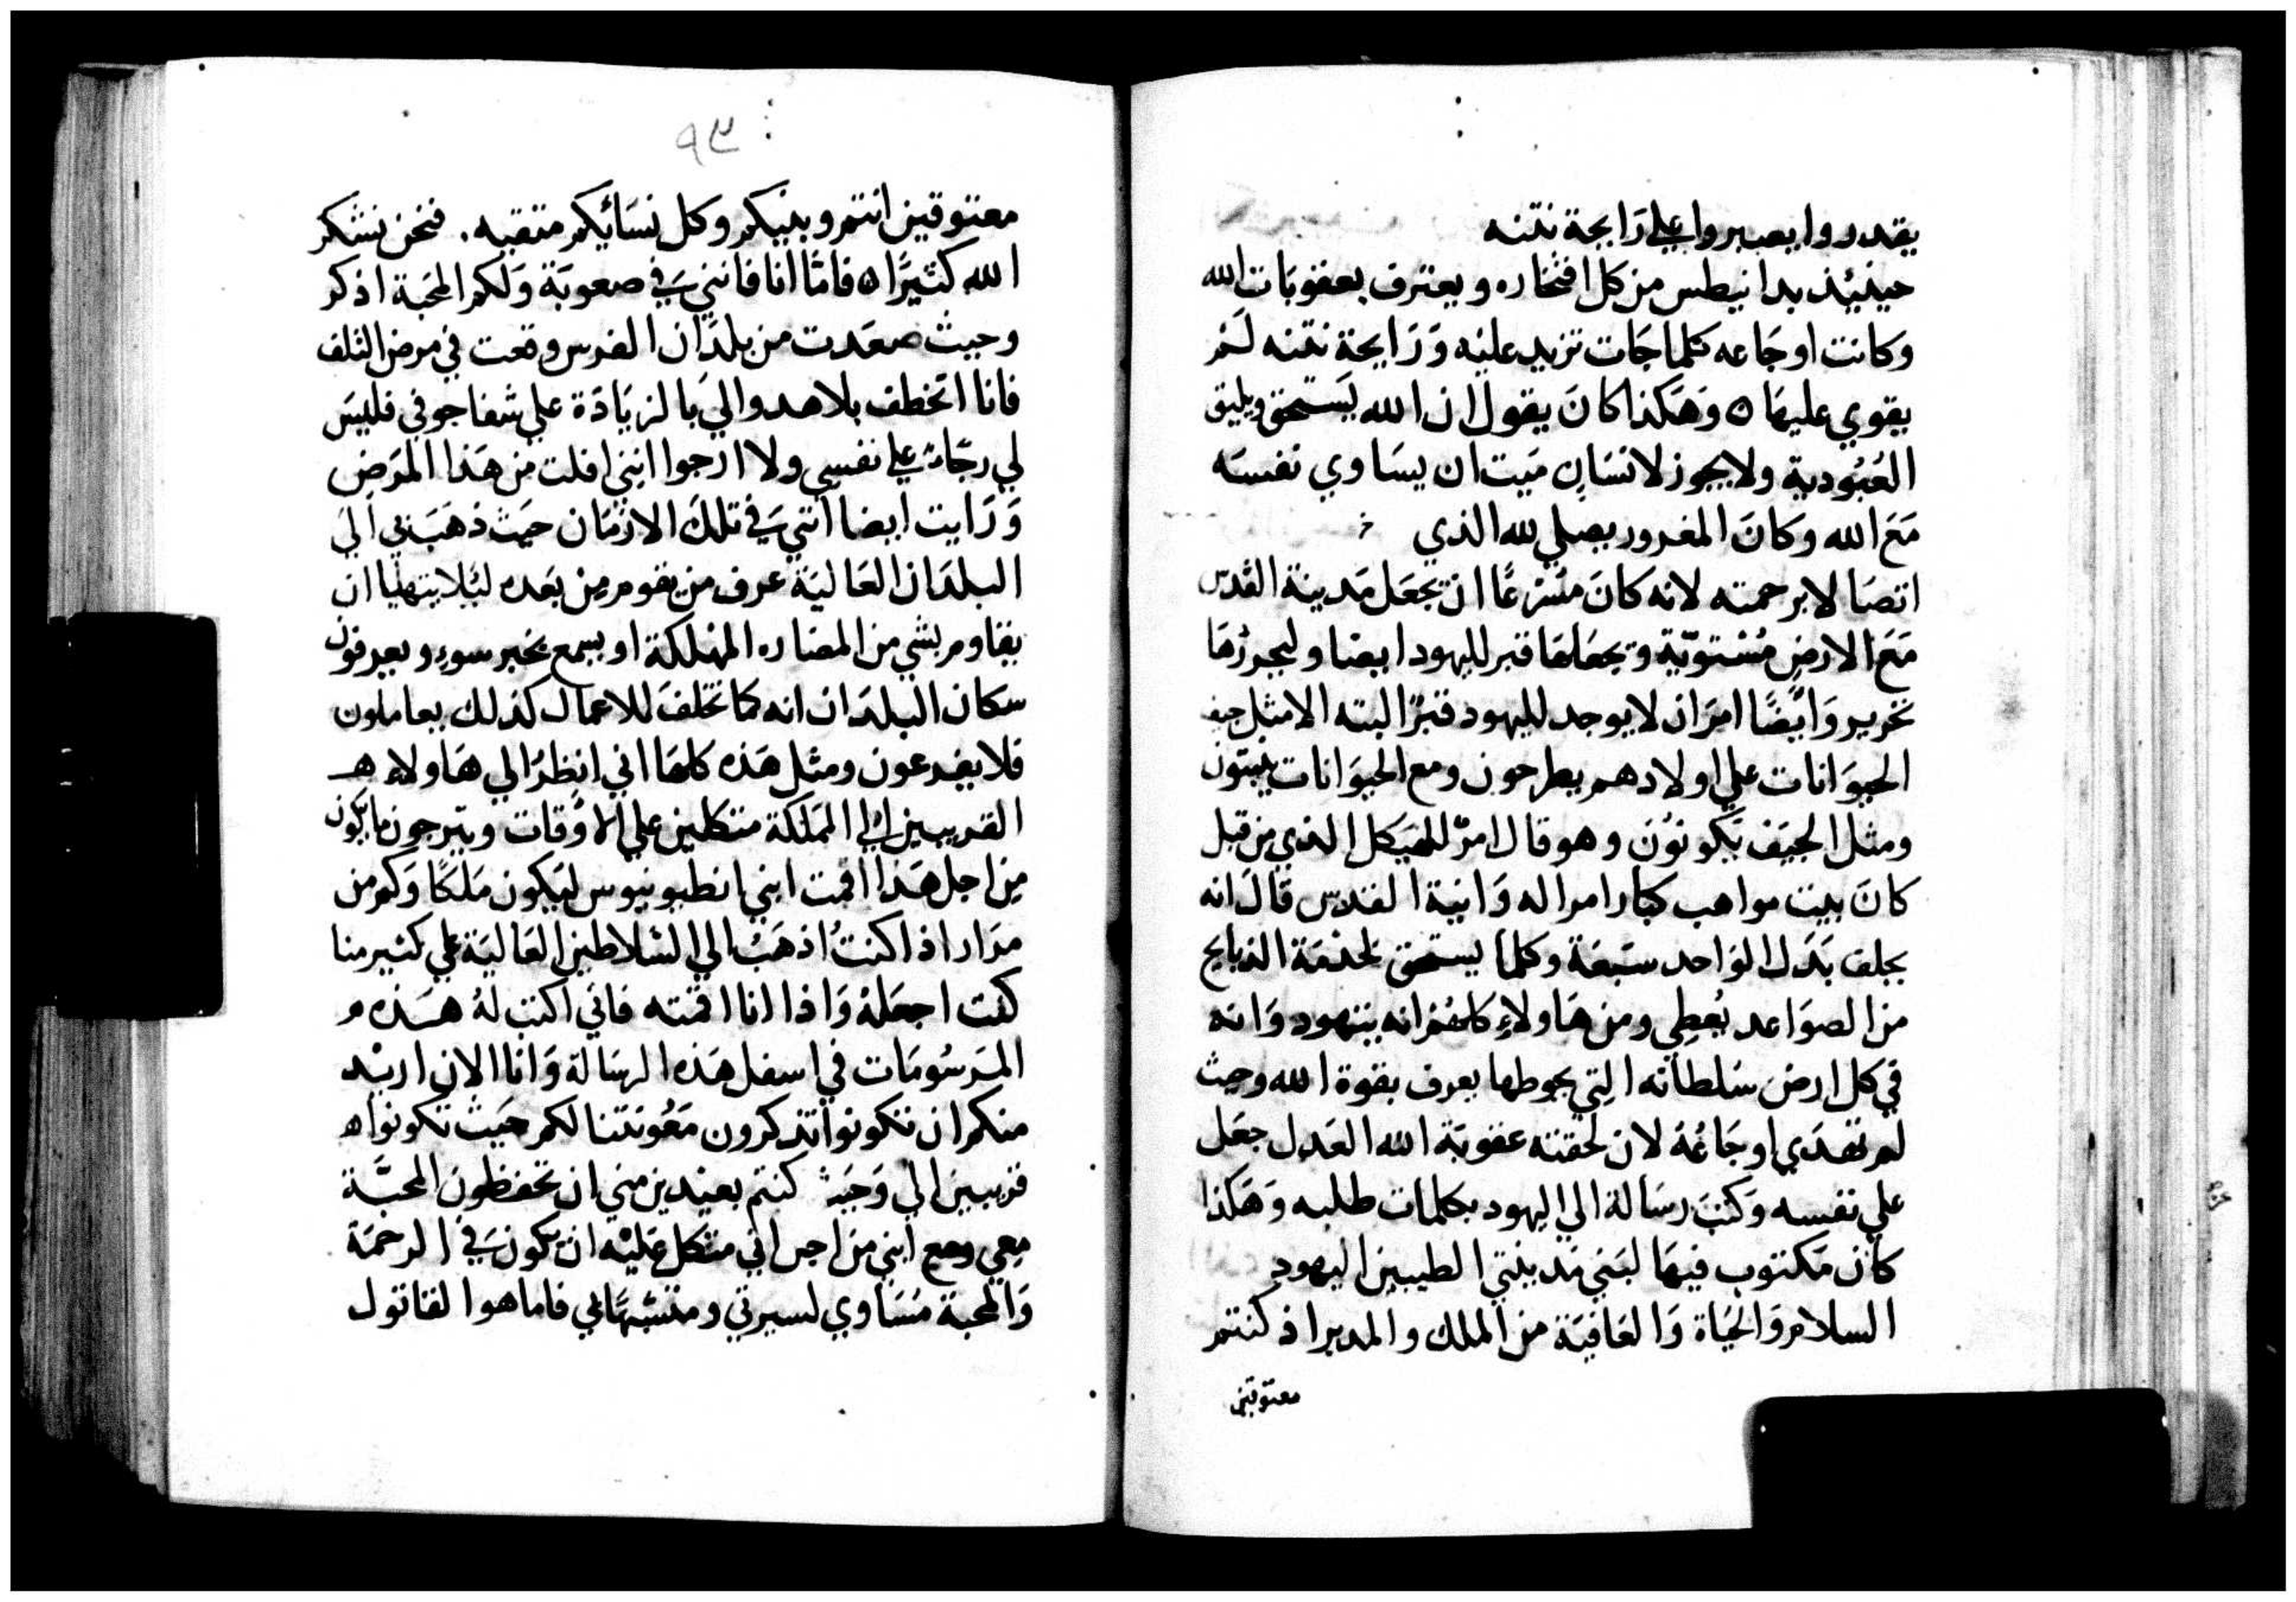 يقدروا يصبروا علي رَايحة نتنه
حينيئذ بدا نيطس من كل افتخاره ويعترف بعقوبَات الله
وَكانت اوجَاعه كلما جَات تزيد عليْه وَرَايحة نتنه لَمر
يقوي عليهَا ه وَهَكذا كانَ يقول ان الله يَستحق ويليق
العُبُودية ولا يجوز لانسَان مَيت ان يسَاوي نفسَه
مَعَ الله وَكانَ المغرور يصلي لله الذي
اتصَا لا برحمته لانه كانَ مسْرعًا ان تجعَل مَدينة القدس
مَعَ الارضِ مُسْتَويّة وتجعَلهَا قبر لليهود ايضا وليحررُهَا
تحرير وَايضًا امرَ ان لا يوجد لليهود قبرًا البته الا مثل جيف
الحيوَانات علي اولادهم يطرحون ومع الحيوَانات يبيتون
ومثل الجيَف يَكونوُنَ وهو قال امرّ للهَيكل الذي من قبل
كانَ بيت مواهب كبار امرا له وَانية القدس قالَ انه
يجلف بَدَل الوَاحد سَبعَة وكلما يستحق لخدمَة الذبايح
من الصوَاعد يُعطي ومن هَاولاءِ كلهُم انه يتهود وَانه
في كل ارض سُلطانه التِي يحوطها يعرف بقوة الله وحيث
لم تهدَي اوجَاعُهُ لان لحقته عقوبَة الله العَدل جعَل
علي نفسه وَكتبَ رسَالة الي اليهود بكلمات طلبه وَهَكذا
كان مَكتوب فيهَا لبَني مَدينتي الطيبين اليهود
السلام وَالحيَاة وَالعَافيَة من الملك والمدبر اذ كنتم
معتوقين
٩٣
معتوقين انتم وبنيكم وكل نسَائيكم منتقبه . فنحن نشكر
الله كثيرًا ه فامّا انا فانني في صعوبَة وَلكم المحَبة اذكر
وحيث صعَدت من بلدَان الفرس وقعت في مرض التلف
فانا اتخطف بلا هدو الي بالزيَادَة علي شفا جوفي فليسَ
لي رجَاءٌ علي نفسِي ولا ارجوا انني افلت من هَذا المرَض
وَرَايت ايضا انني في تلكَ الازمَان حيَث ذهَبَ بي الي
البلدَان العَاليَة عرف من يقوم مِنْ بعَده ليَلا يتهيا ان
يقاوم بشي من المضاره المهْلكة او يسمع بخبر سوءِ ويعرفون
سكان البلدَان انه كمَا تخلفَ للاعمال كذلك يعاملون
فلا يفدعون ومثل هَذه كلهَا اني انظرُ الي هَاولاءِ هـ
القريبين الي المَلكة متكلين علي الاوُقات ويترجون ما يَكون
مِن اجل هَذا اقمت ابني انطيونيوس ليَكون مَلكًا وَكم من
مرَار اذا كنتُ اذهَبُ الي السَلاطين العَاليَة علي كثير منا
كنت اجعَلهُ وَاذا انا اقمته فاني اكتب لهُ هـَذه و
المرَسُومَات في اسفل هَذه الرسَالة وَانا الان اريْد
منكم ان تكونوا تذكرون مَعُونتنا لكم حَيث تكونوا ه
قريبين الي وَحَيث كنتم بعيْدين مني ان تحفظون المحبَّة
معِي ومع ابني من اجل اني متكل عَليْه ان يكون في الرحمَة
وَالمحبة مُسَاوي لسيرتي ومتشبهًا بي فاما هوا لقاتول